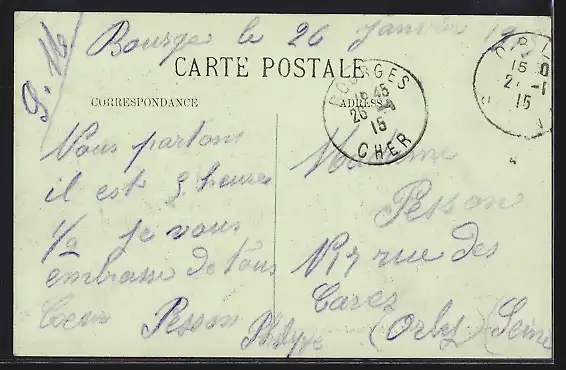 S. M
Bourge le 26 Janvier 15
CARTE POSTALE
CORRESPONDANCE
ADRESSE
BOURGES
16 45
26 -1
15
CHER
ORL
15
27 -1
15
Nous partons
il est 9 heures
1/2 Je vous
embrasse de tous
Coeur Pesson
Madame
Pesson
N 17 rue des
Carez
(Orly) (Seine